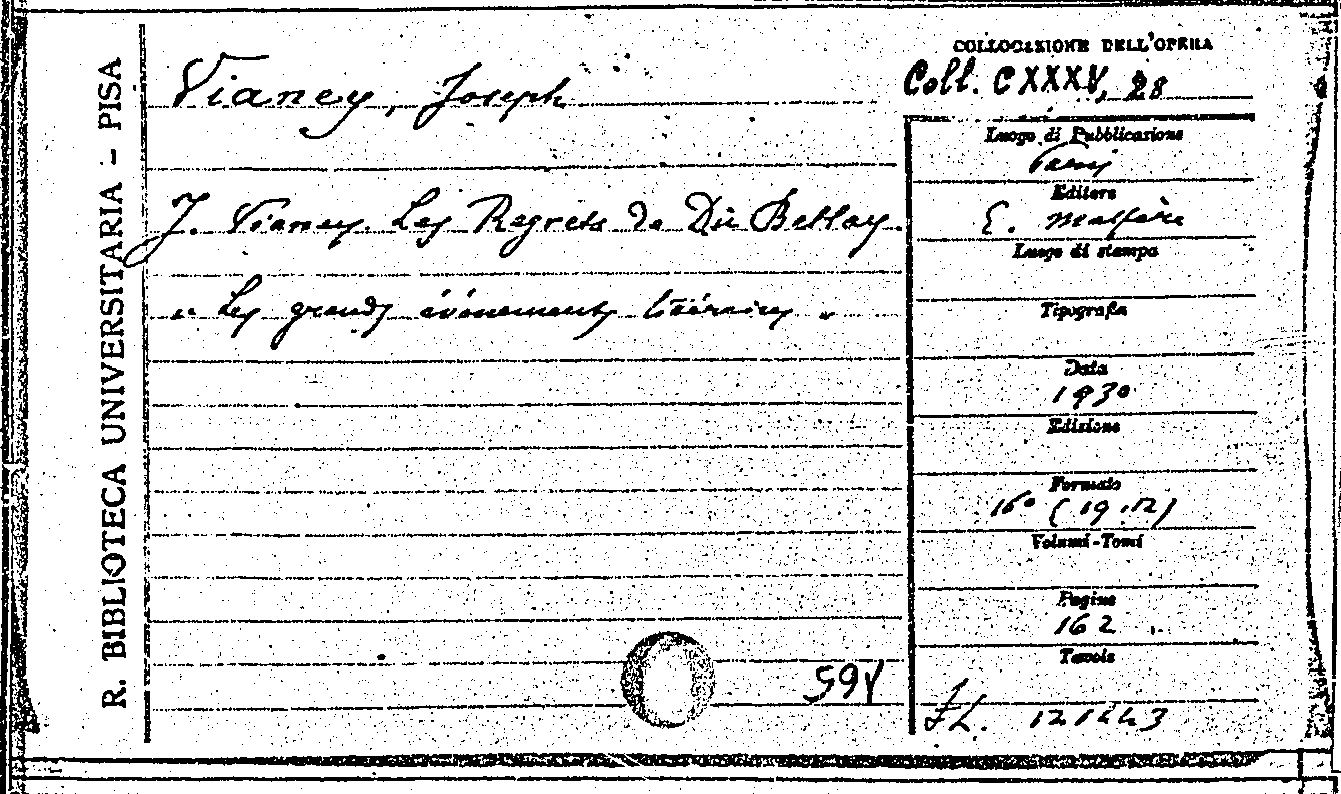 R. BIBLIOTECA UNIVERSITARIA - PISA
Vianey, Joseph
J. Vianey. Les Regrets de Du Bellay.
" Les grands événements littéraires "
COLLOCAZIONE DELL'OPERA
Coll. CXXXV, 28
Luogo di Pubblicazione
Paris
Editore
E. Malfère
Luogo di stampa
Tipografia
Data
1930
Edizione
Formato
16° (19.12)
Volumi-Tomi
Pagine
162
Tavole